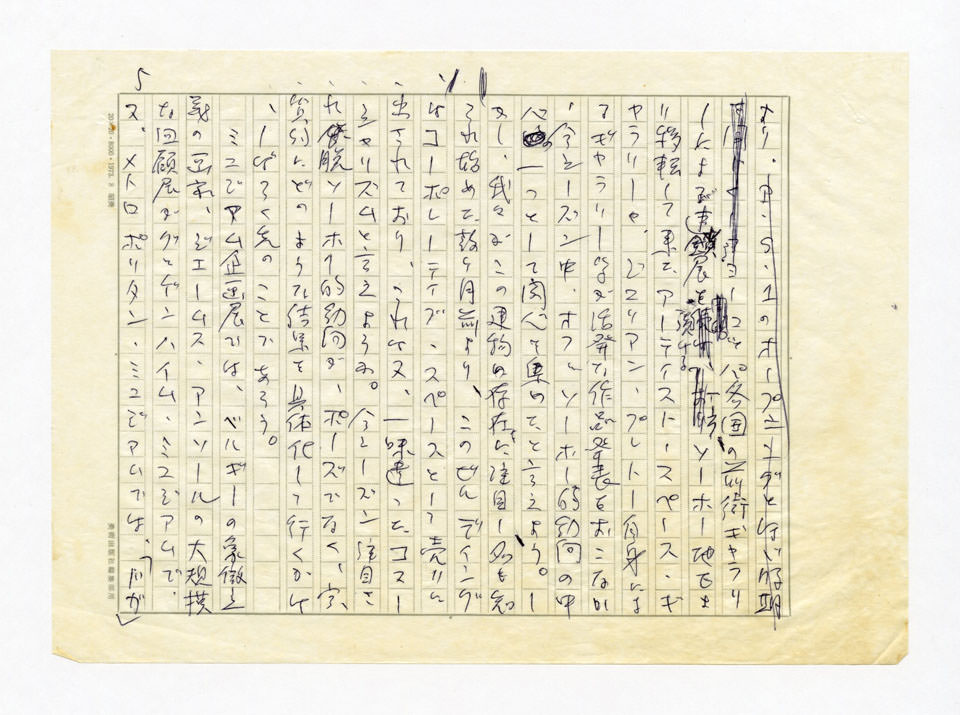 5
なり、P・S・1のオープニングとほぼ同期
ヨーロッパ各国の前衛ギャラリ
ーによる 展を 一方、ソーホー地区よ
り移転して来た、アーティスト・スペース・ギ
ャラリーや、ジュリアン・プレトー自身によ
るギャラリー等が活発な作品発表をおこなか
、今シーズン中、オフ・ソーホー的動向の中
心の一つとして関心を集めたと言えよう。し
かし、我々がこの建物の存在に注目し名を知
それ始めた、数ヶ月前より、このビルディング
はコーポレーティブ・スペースとして売りに
出されており、 一味違ったコマー
シャリズムと言えようか。今シーズン注目さ
れた脱ソーホー的動向が、ポーズでなく、実
質的にどのような結果を具体化して行くかは
、しばらく先のことであろう。
ミュゼアム企画展では、ベルギーの象徴主
義の画家、ジェームス・アンソールの大規模
な回顧展がグッゲンハイム・ミュゼアムで、
メトロポリタン・ミュゼアムでは、
20×20・8000・1973・8